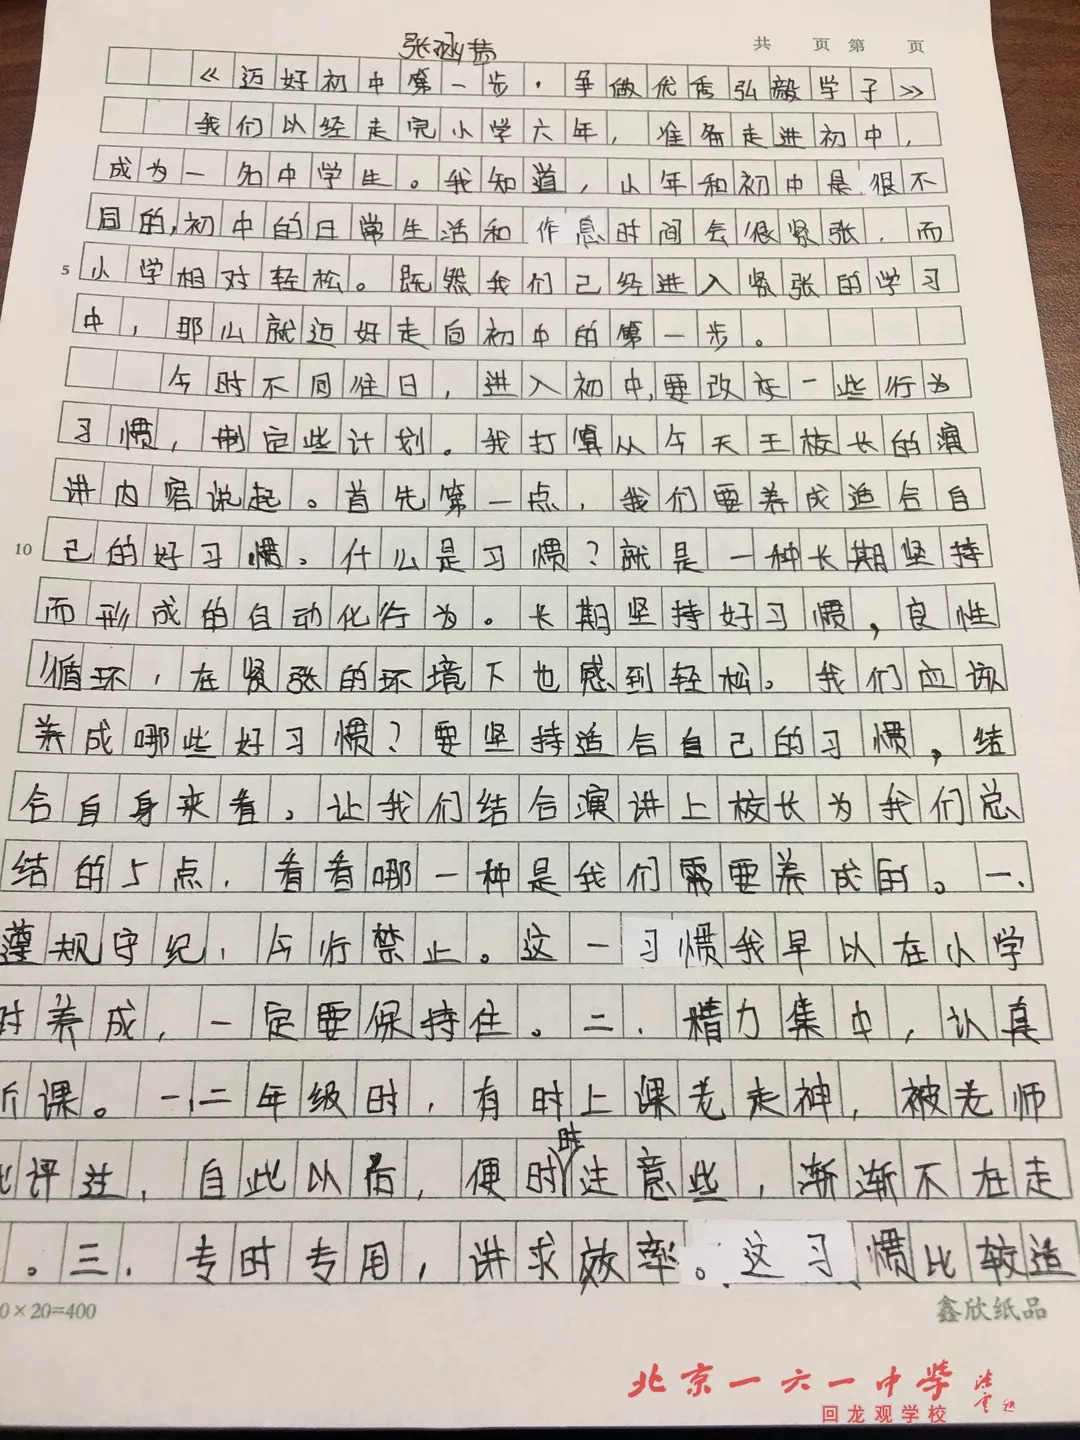 张涵
共 页 第 页
《迈好初中第一步·争做优秀弘毅学子》
我们以经走完小学六年，准备走进初中，
成为一名中学生。我知道，小年和初中是很不
同的，初中的日常生活和作息时间会很紧张，而
5 小学相对轻松。既然我们已经进入紧张的学习
中，那么就迈好走向初中的第一步。
今时不同往日，进入初中，要改变一些行为
习惯，制定些计划。我打算从今天王校长的演
讲内容说起。首先第一点，我们要养成适合自
10 己的好习惯。什么是习惯？就是一种长期坚持
而形成的自动化行为。长期坚持好习惯，良性
循环，在紧张的环境下也感到轻松。我们应该
养成哪些好习惯？要坚持适合自己的习惯，结
合自身来看。让我们结合演讲上校长为我们总
结的5点，看看哪一种是我们需要养成的。一、
遵规守纪，令行禁止。这一习惯我早以在小学
时养成，一定要保持住。二、精力集中，认真
听课。一，二年级时，有时上课老走神，被老师
批评过，自此以后，便时时注意些，渐渐不在走
。三、专时专用，讲求效率。这习惯比较适
0×20=400
鑫欣纸品
北京一六一中学
回龙观学校